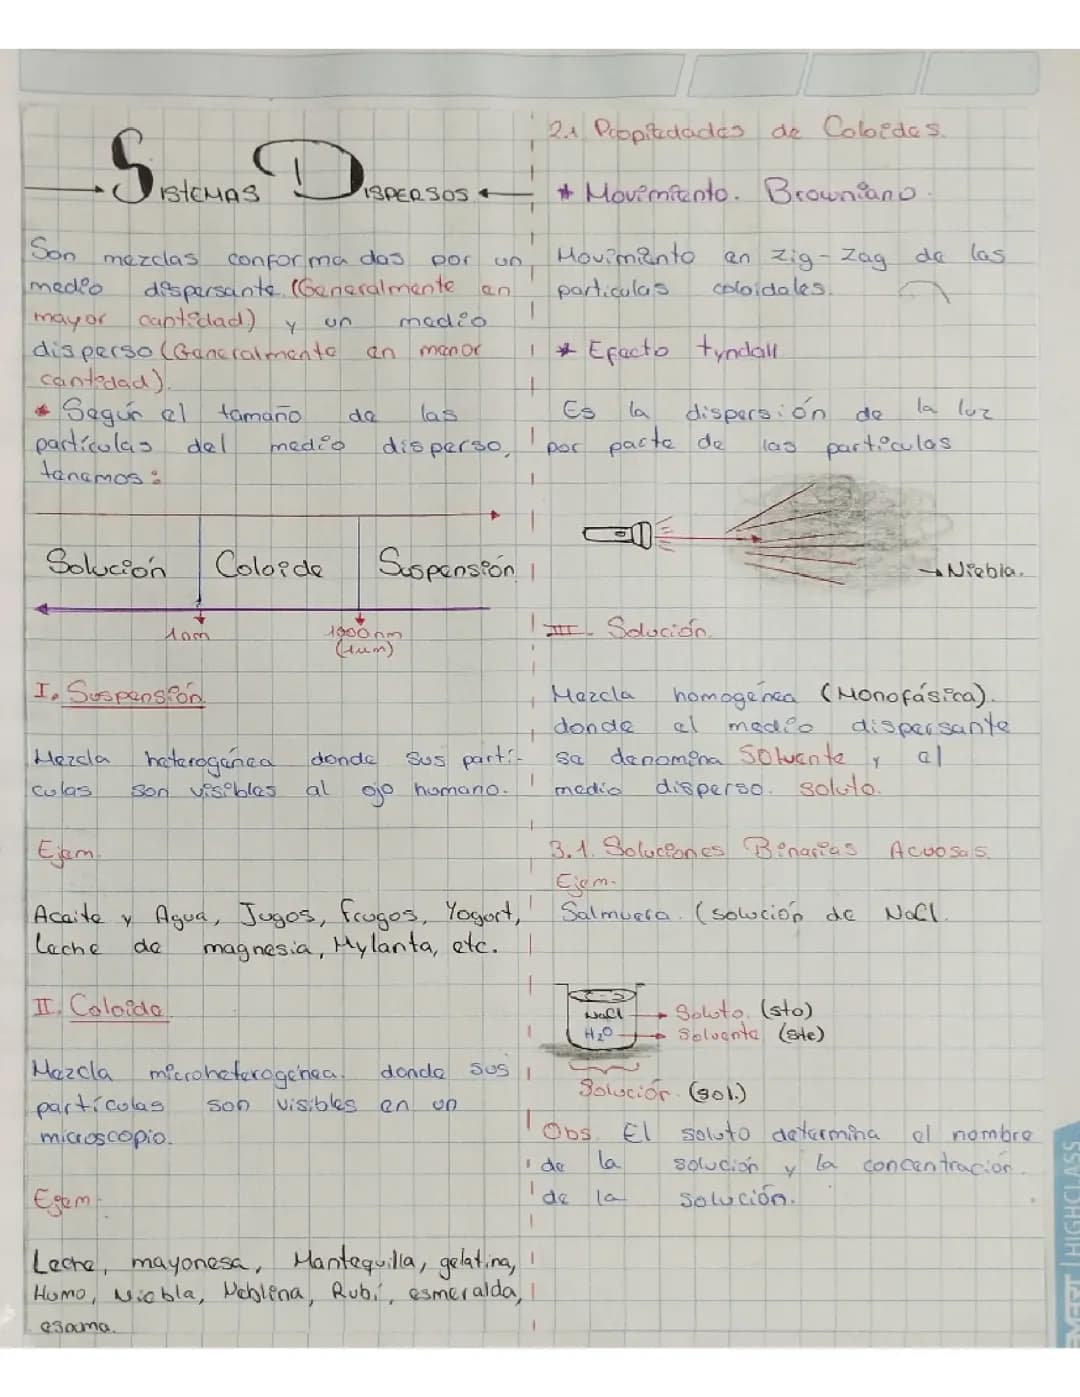 Sistemas Dispersos
Son mezclas conformadas por un
medio dispersante (Generalmente en
mayor cantidad) y un medio
disperso (Generalmente en menor
cantidad).
* Según el tamaño de las
partículas del medio disperso,
tenemos:
Solución Coloide Suspensión
1nm 1000nm
(1um)
I. Suspensión
Mezcla heterogénea donde sus partí-
culas son visibles al ojo humano.
Ejem.
Aceite y Agua, Jugos, Frugos, Yogort,
Leche de magnesia, Mylanta, etc.
II. Coloide
Mezcla microheterogénea. donde sus
partículas son visibles en un
microscopio.
Ejem.
Leche, mayonesa, Mantequilla, gelatina,
Humo, Niebla, Neblina, Rubí, esmeralda,
espuma.
2.1 Propiedades de Coloides.
* Movimiento. Browniano.
Movimiento en zig-zag de las
particulas coloidales.
* Efecto tyndall
Es la dispersión de la luz
por parte de las particulas
Niebla.
III. Solución.
Mezcla homogénea (Monofásica).
donde el medio dispersante
se denomina Solvente y el
medio disperso. soluto.
3.1. Soluciones Binarias Acuosas.
Ejem.
Salmuera. (solución de NaCl.
NaCl Soluto. (sto)
H₂O Solvente (ste)
Solución. (sol.)
Obs. El soluto determina el nombre
de la solución y la concentración.
de la solución.
EMERST | HIGHCLASS